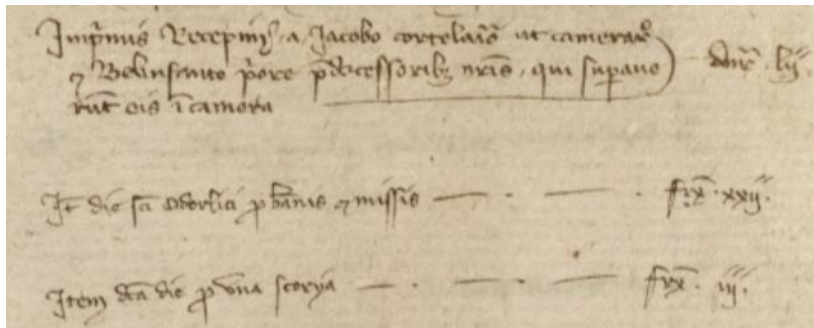 Imprimis Recepimus a Jacobo cortelario ut camerario
et Belinscinto priore predecessoribus nostris, qui superave
runt eis in camera den̄r. lii.
It̄ die sc̄i Odorlici p bānis et missis — . — . frx̄. xxii.
Item dc̄a die p una scorya — . — . — frx̄. iii.